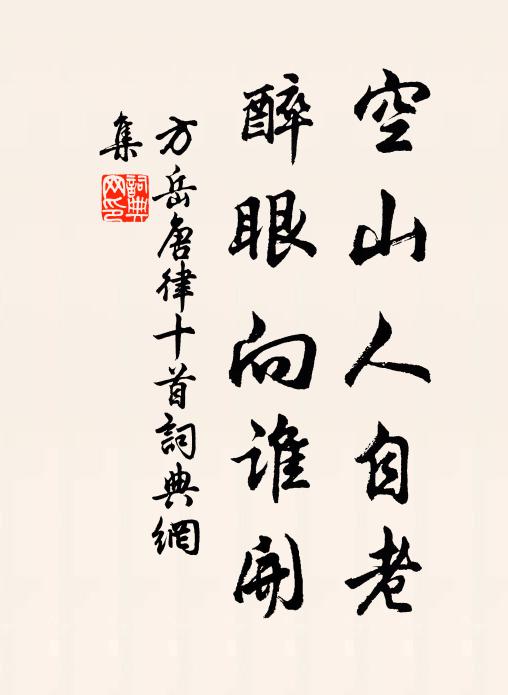 空山人自老
醉眼向谁開
方岳唐律十首詞典網
集
詞典網印